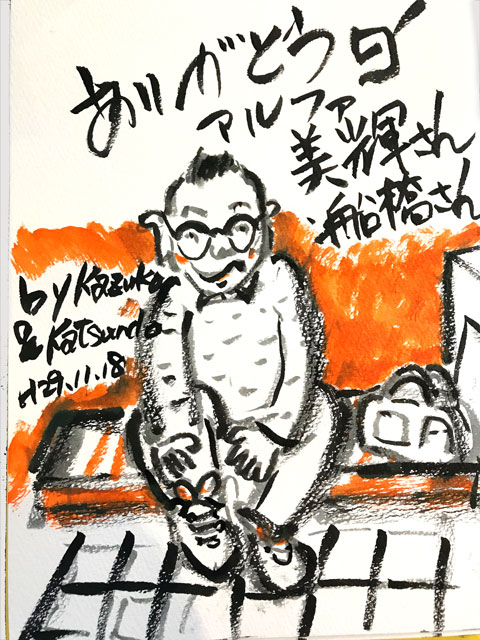 ありがとう
アルファ
美輝さん
船橋さん
by Kazuko
& Katsundo
H29.11.18